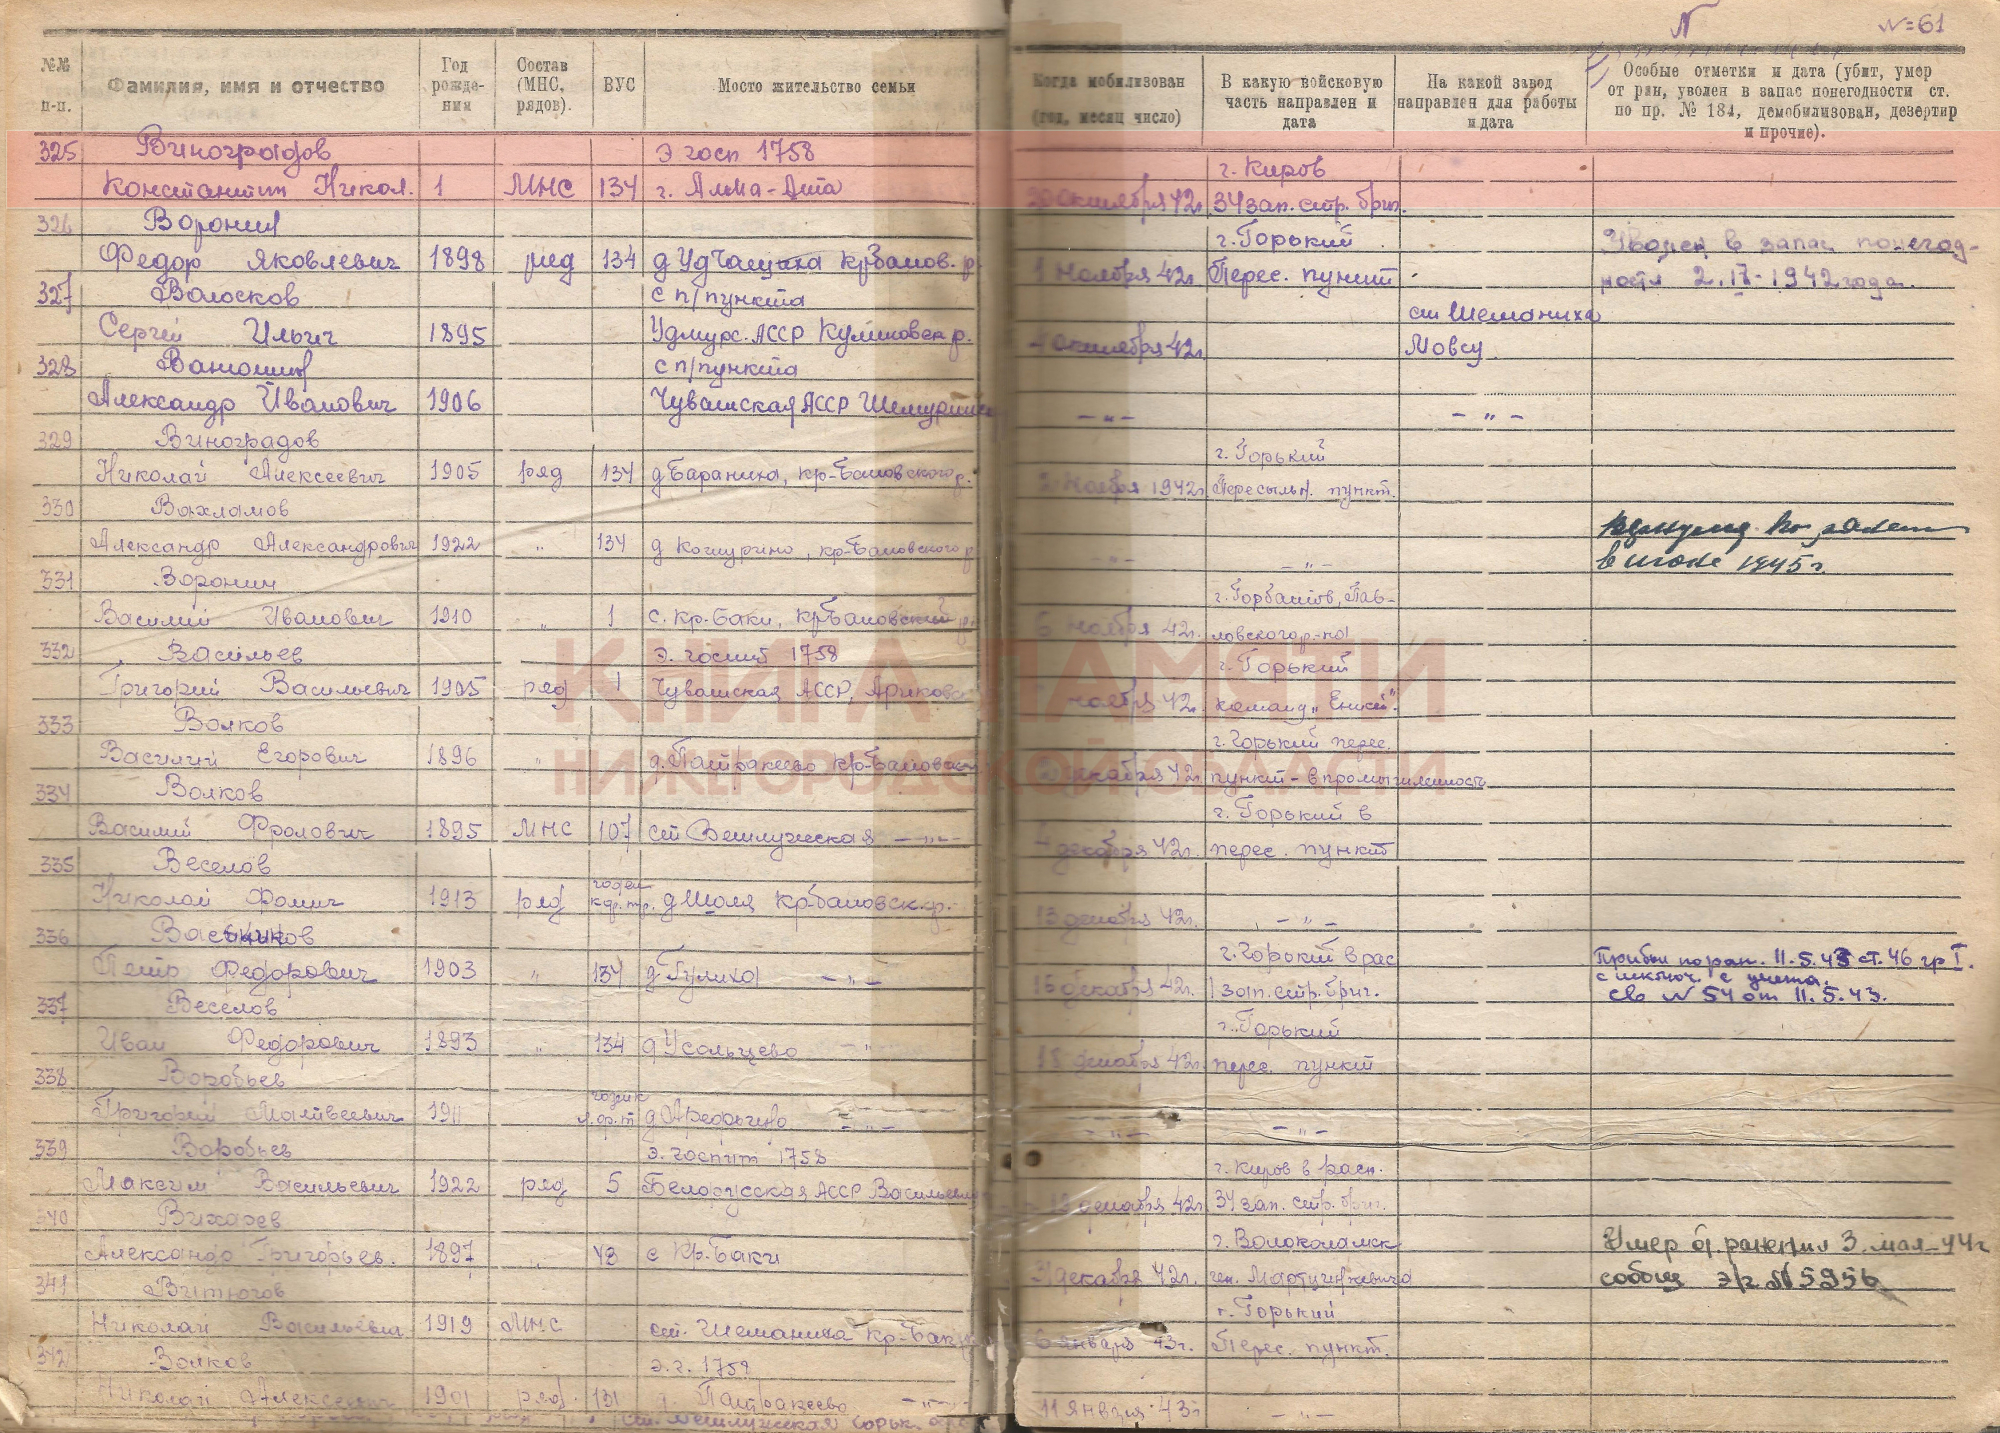 N
N=61
№№ п-п.
Фамилия, имя и отчество
Год рождения
Состав (МНС, рядов).
ВУС
Мосто жительство семьи
Когда мобилизован (год, месяц число)
В какую войсковую часть направлен и дата
На какой завод направлен для работы и дата
Особые отметки и дата (убит, умер от ран, уволен в запас понегодности ст. по пр. № 184, демобилизован, дезертир и прочие).
325 Виноградов э госп 1758 г. Киров
Константин Никол. 1 МНС 134 г. Алма-Ата 20 октября 42г. 34 зап. стр. бриг.
326 Воронин г. Горький Уволен в запас понегод-
Федор Яковлевич 1898 ряд 134 кр-Баков. р. 1 ноября 42г. Перес. пункт ности 2.IX-1942 года.
327 Волосков с п/пункта ст Шеманиха
Сергей Ильич 1895 Удмурс. АССР р. октября 42г. Мовсу
328 с п/пункта
Александр Иванович 1906 Чувашская АССР — " — — " —
329 Виноградов г. Горький
Николай Алексеевич 1905 ряд 134 д Бараниха, кр-Баковского р. 2 ноября 1942г. Пересыльн. пункт.
330 Вахламов
Александр Александрович 1922 " 134 д Кошурино, кр-Баковского р -"- — " — в июле 1945 г.
331 Воронин г. Горбатов, Пав-
Василий Иванович 1910 " 1 с. Кр. Баки, кр Баковский р. 6 ноября 42г. ловского р-на
332 Васильев э. госпит 1758 г. Горький
Григорий Васильевич 1905 ряд 1 Чувашская АССР, ноября 42г. команд „Енисей".
333 Волков г. Горький перес.
Василий Егорович 1896 " д. Патракеево кр-Баковск 2 декабря 42г. пункт - в промышленность
334 Волков г. Горький в
Василий Фролович 1895 МНС 107 ст Ветлужская — " — 4 декабря 42г. перес. пункт
335 Веселов годен
Николай Фомич 1913 ряд д Шоля Кр-баковск. р. 13 декабря 42г. — " —
336 г. Горький в рас Прибыл по ран. 11.5.43 ст. 46 гр I.
Петр Федорович 1903 " 134 д Гулиха — " — 15 декабря 42г. 1 зап. стр. бриг. с исключ. с учета.
337 Веселов г. Горький св N 54 от 11.5.43.
Иван Федорович 1893 " 134 д Усольцево — " — 15 декабря 42г. перес. пункт
338 Воробьев
Григорий Матвеевич 1911 д Арефьино — " — — " — — " —
339 Воробьев э. госпит 1758 г. Киров в расп.
Максим Васильевич 1922 ряд 5 Белорусская АССР 18 декабря 42г. 34 зап. стр. бриг.
340 Вихарев г. Волоколамск Умер от ранения 3. мая-44г
Александр Григорьев. 1897 " 43 с Кр. Баки 31 декабря 42г. сообщ э/г. № 5956
341 Витюгов г. Горький
Николай Васильевич 1919 МНС ст. Шеманиха Кр-Бак 6 января 43г. Перес. пункт.
342 Волков э. г. 1758
Николай Алексеевич 1901 ряд. 131 д. Патракеево — " — 11 января 43г — " —
ст. Ветлужская Горьк.
КНИГА ПАМЯТИ
НИЖЕГОРОДСКОЙ ОБЛАСТИ